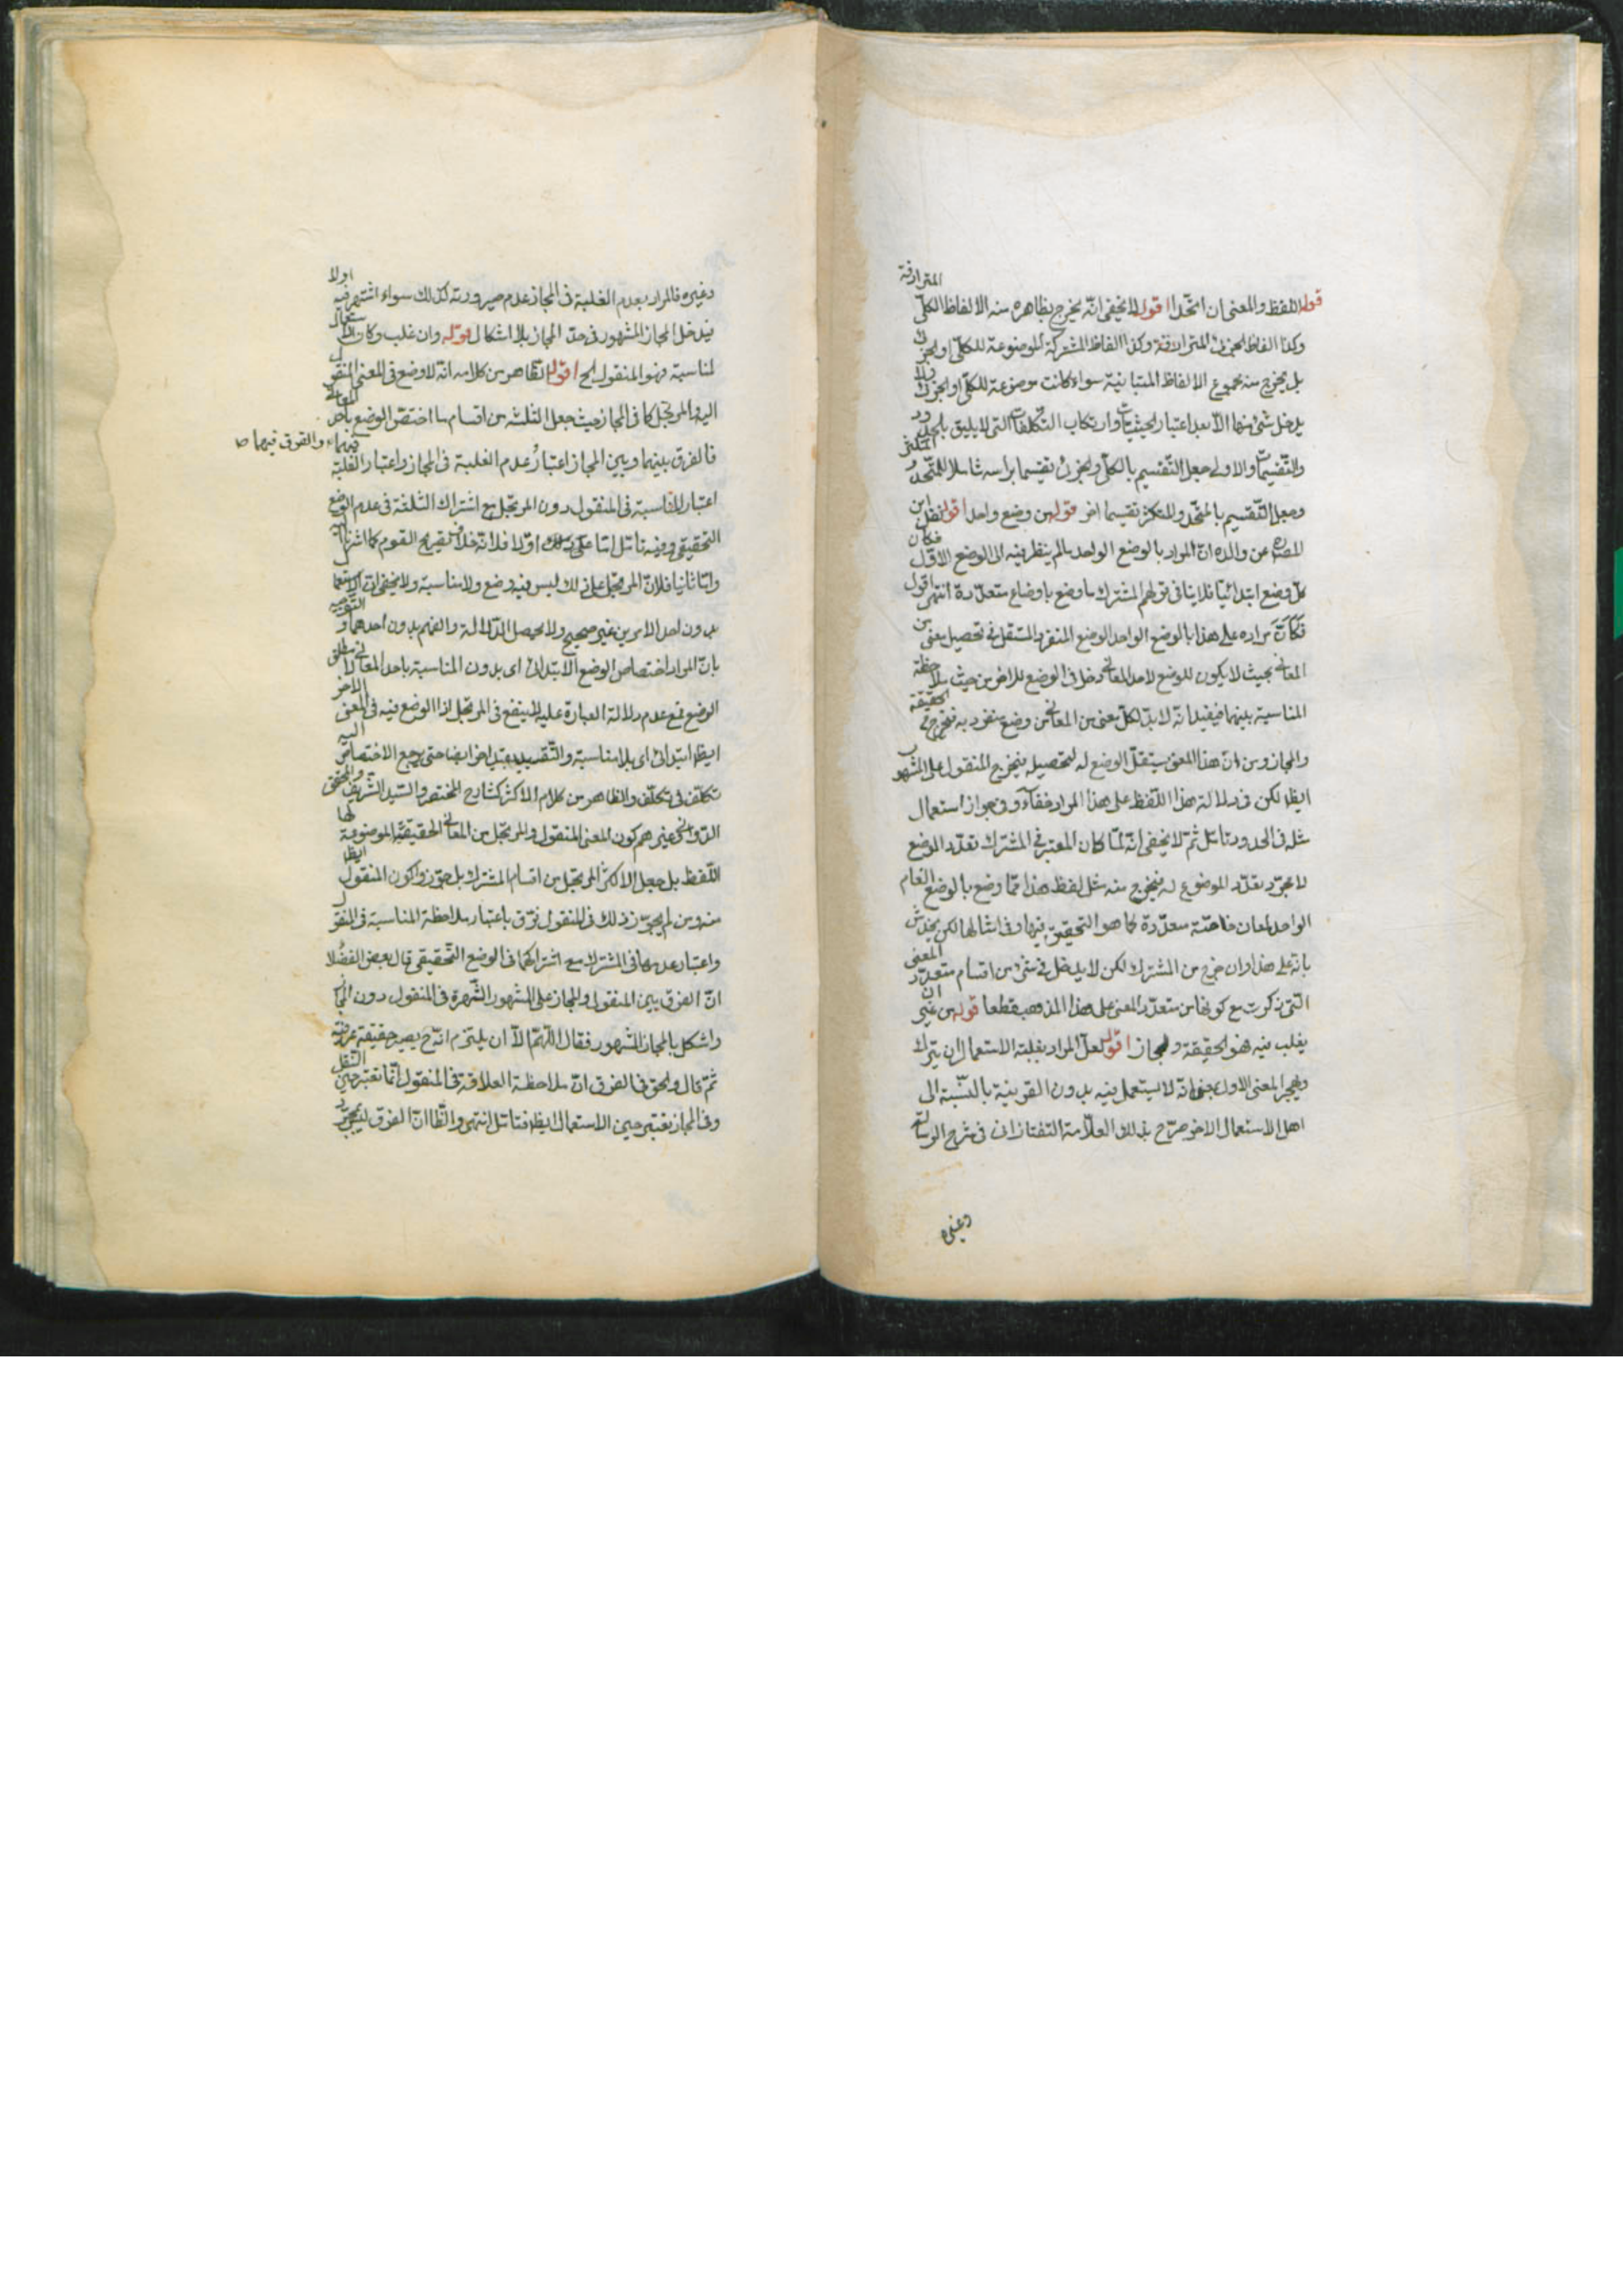 قوله اللفظ والمعنى ان اتحدا اقول لا يخفى انه يخرج بظاهره منه الالفاظ الكلى المترادفة
وكذا الفاظ الجزئى المترادفة وكذا الفاظ المشتركة الموضوعة للكلى او الجزئى
بل يخرج منه مجموع الالفاظ المتباينة سواء كانت موضوعة للكلى او الجزئى ولا
يدخل شئ منها الا بعد اعتبار الحيثيات وارتكاب التكلفات التى لا يليق بالحدود
والتقسيمات والاولى جعل التقسيم بالكلى والجزئى تقسيما براسه شاملا للمتحد والمتكثر
وجعل التقسيم بالمتحد والمتكثر تقسيما اخر قوله من وضع واحد اقول نقل ابن
المصره عن والده ان المراد بالوضع الواحد ما لم ينظر فيه الى الوضع الاول فكان
كل وضع ابتدائيا فلا ينافى قولهم المشترك ما وضع باوضاع متعددة انتهى اقول
فكان مراده على هذا بالوضع الواحد الوضع المنفرد المستقل فى تحصيل معنى من
المعانى بحيث لا يكون للوضع لاحد المعانى دخل فى الوضع للاخر من حيث ملاحظة
المناسبة بينهما فيفيد انه لابد لكل معنى من المعانى من وضع منفرد به فيخرج الحقيقة
والمجاز ومن ان هذا المعنى يستقل الوضع له لتحصيله فيخرج المنقول على المشهور
ايظا لكن فى دلالة هذا اللفظ على هذا المراد خفاء وفى جواز استعمال
مثله فى الحدود تامل ثم لا يخفى انه لما كان المعتبر فى المشترك تعدد الوضع
لا مجرد تعدد الموضوع له فيخرج منه مثل لفظ هذا مما وضع بالوضع العام
الواحد لمعان خاصة متعددة كما هو التحقيق فيها وفى امثالها لكن يخدش
بانه على هذا وان خرج من المشترك لكن لا يدخل فى شئ من اقسام متعدد المعنى
التى ذكرت مع كونها من متعدد المعنى على هذا المذهب قطعا قوله من غير ان
يغلب فيه فهو الحقيقة والمجاز اقول لعل المراد بغلبة الاستعمال ان يترك
ويهجر المعنى الاول بمعنى انه لا يستعمل فيه بدون القرينة بالنسبة الى
اهل الاستعمال الاخر صرح بذلك العلامة التفتازانى فى شرح الرسالة
وغيره
وغيره فالمراد بعدم الغلبة فى المجاز عدم صيرورته كذلك سواء اشتهر فيه اولا
فيدخل المجاز المشهور فى حد المجاز بلا اشكال قوله وان غلب وكان الاستعمال
لمناسبة فهو المنقول الخ اقول الظاهر من كلامه انه لا وضع فى المعنى المنقول
اليه والمرتجل كما فى المجاز حيث جعل الثلثة من اقسام ما اختص الوضع باحد المعانى
فالفرق بينهما وبين المجاز اعتبار عدم الغلبة فى المجاز واعتبار الغلبة فيهما والفرق فيهما
اعتبار المناسبة فى المنقول دون المرتجل مع اشتراك الثلثة فى عدم الوضع
التحقيقى وفيه تامل اما اولا فلانه خلاف تصريح القوم كما اشرنا اليه
واما ثانيا فلان المرتجل على ذلك ليس فيه وضع ولا مناسبة ولا يخفى ان الاستعمال
بدون احد الامرين غير صحيح ولا يحصل الدلالة والفهم بدون احدهما والتوجيه
بان المراد اختصاص الوضع الابتدائى اى بدون المناسبة باحد المعانى لا مطلق
الوضع مع عدم دلالة العبارة عليه لا ينفع فى المرتجل اذ الوضع فيه فى المعنى الاخر
ايظا ابتدائى اى بلا مناسبة والتقييد بقيد اخر ايضا حتى يرجع الاختصاص اليه
تكلف فى تكلف والظاهر من كلام الاكثر كشارح المختصر والسيد الشريف والمحقق
الدوانى وغيرهم كون المعنى المنقول والمرتجل من المعانى الحقيقية الموضوعة لها
اللفظ بل جعل الاكثر المرتجل من اقسام المشترك بل جوزوا كون المنقول ايظا
منه ومن لم يجوز ذلك فى المنقول فرق باعتبار ملاحظة المناسبة فى المنقول
واعتبار عدمها فى المشترك مع اشتراكهما فى الوضع التحقيقى قال بعض الفضلا
ان الفرق بين المنقول والمجاز على المشهور الشهرة فى المنقول دون المجا
واشكل بالمجاز المشهور فقال اللهم الا ان يلتزم انه ح يصير حقيقة عرفية
ثم قال والحق فى الفرق ان ملاحظة العلاقة فى المنقول انما تعتبر حين النقل
وفى المجاز تعتبر حين الاستعمال ايظا فتامل انتهى والظا ان الفرق بمجرد